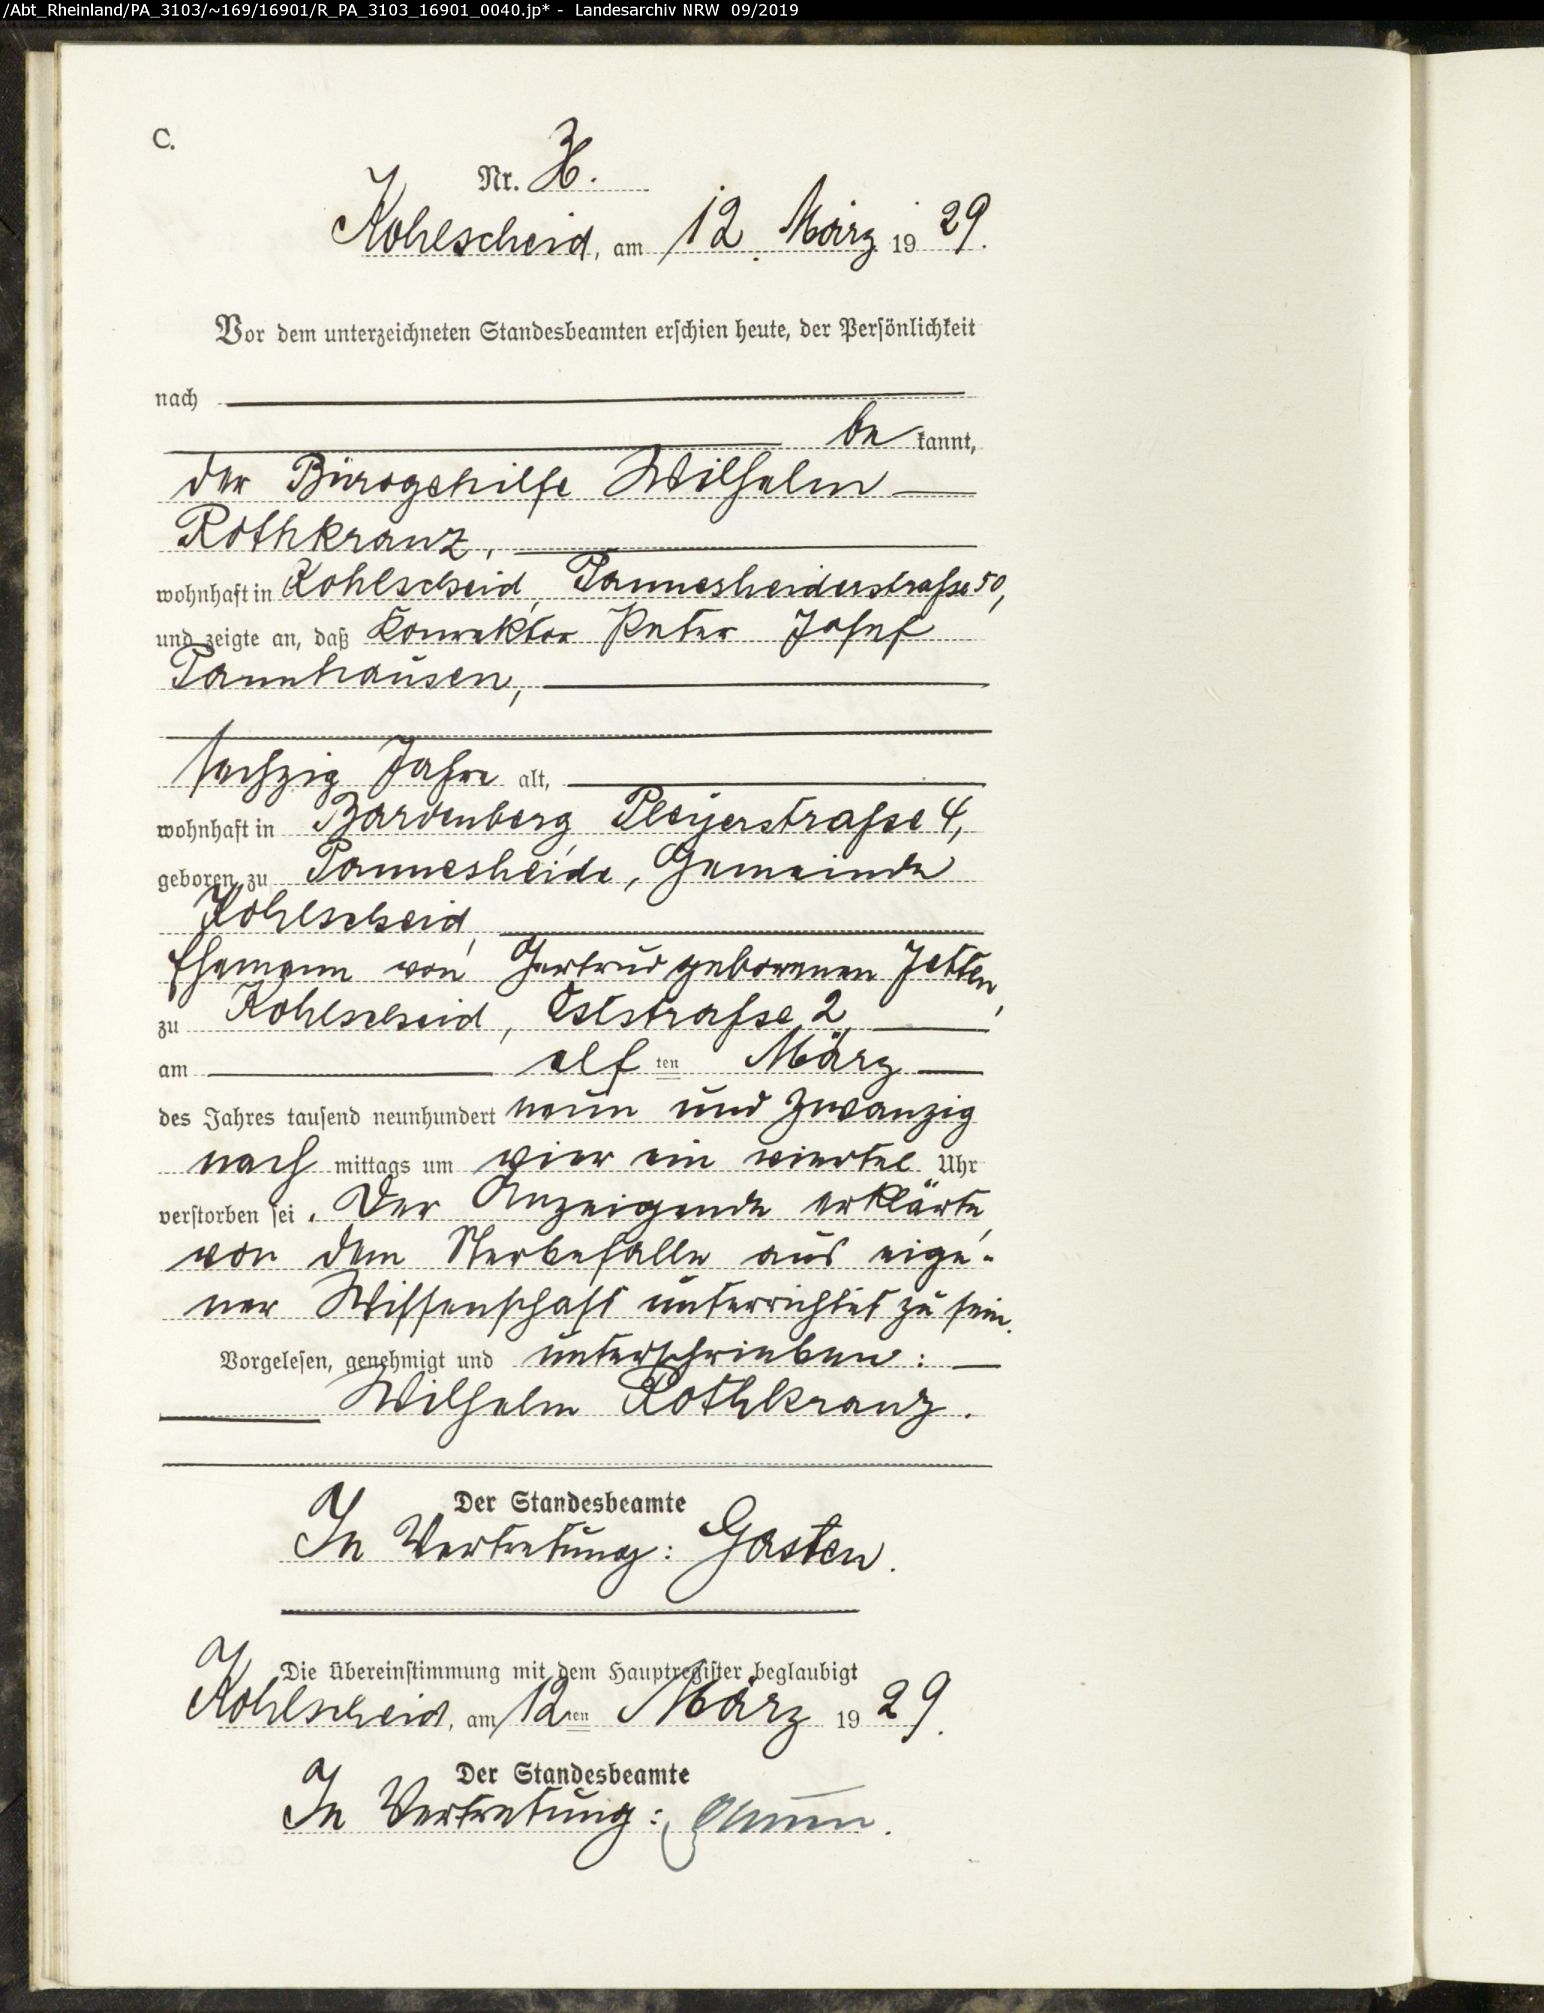 /Abt_Rheinland/PA_3103/~169/16901/R_PA_3103_16901_0040.jp* - Landesarchiv NRW 09/2019
C.
Nr.
Kohlscheid, am 12. März 1929.
Vor dem unterzeichneten Standesbeamten erschien heute, der Persönlichkeit
nach
be kannt,
der Bürogehilfe Wilhelm
Rothkranz,
wohnhaft in Kohlscheid, Pannesheiderstraße 50,
und zeigte an, daß Konrektor Peter Josef
Pannhausen,
sechzig Jahre alt,
wohnhaft in Bardenberg, Pleyerstraße 4,
geboren zu Pannesheide, Gemeinde
Kohlscheid,
Ehemann von Gertrud geborenen Jetten,
zu Kohlscheid, Oststraße 2,
am elf ten März
des Jahres tausend neunhundert neun und zwanzig
nach mittags um vier ein viertel Uhr
verstorben sei. Der Anzeigende erklärte,
von dem Sterbefalle aus eige-
ner Wissenschaft unterrichtet zu sein.
Vorgelesen, genehmigt und unterschrieben:
Wilhelm Rothkranz.
Der Standesbeamte
In Vertretung: Gasten.
Die Übereinstimmung mit dem Hauptregister beglaubigt
Kohlscheid, am 12ten März 1929.
Der Standesbeamte
In Vertretung: